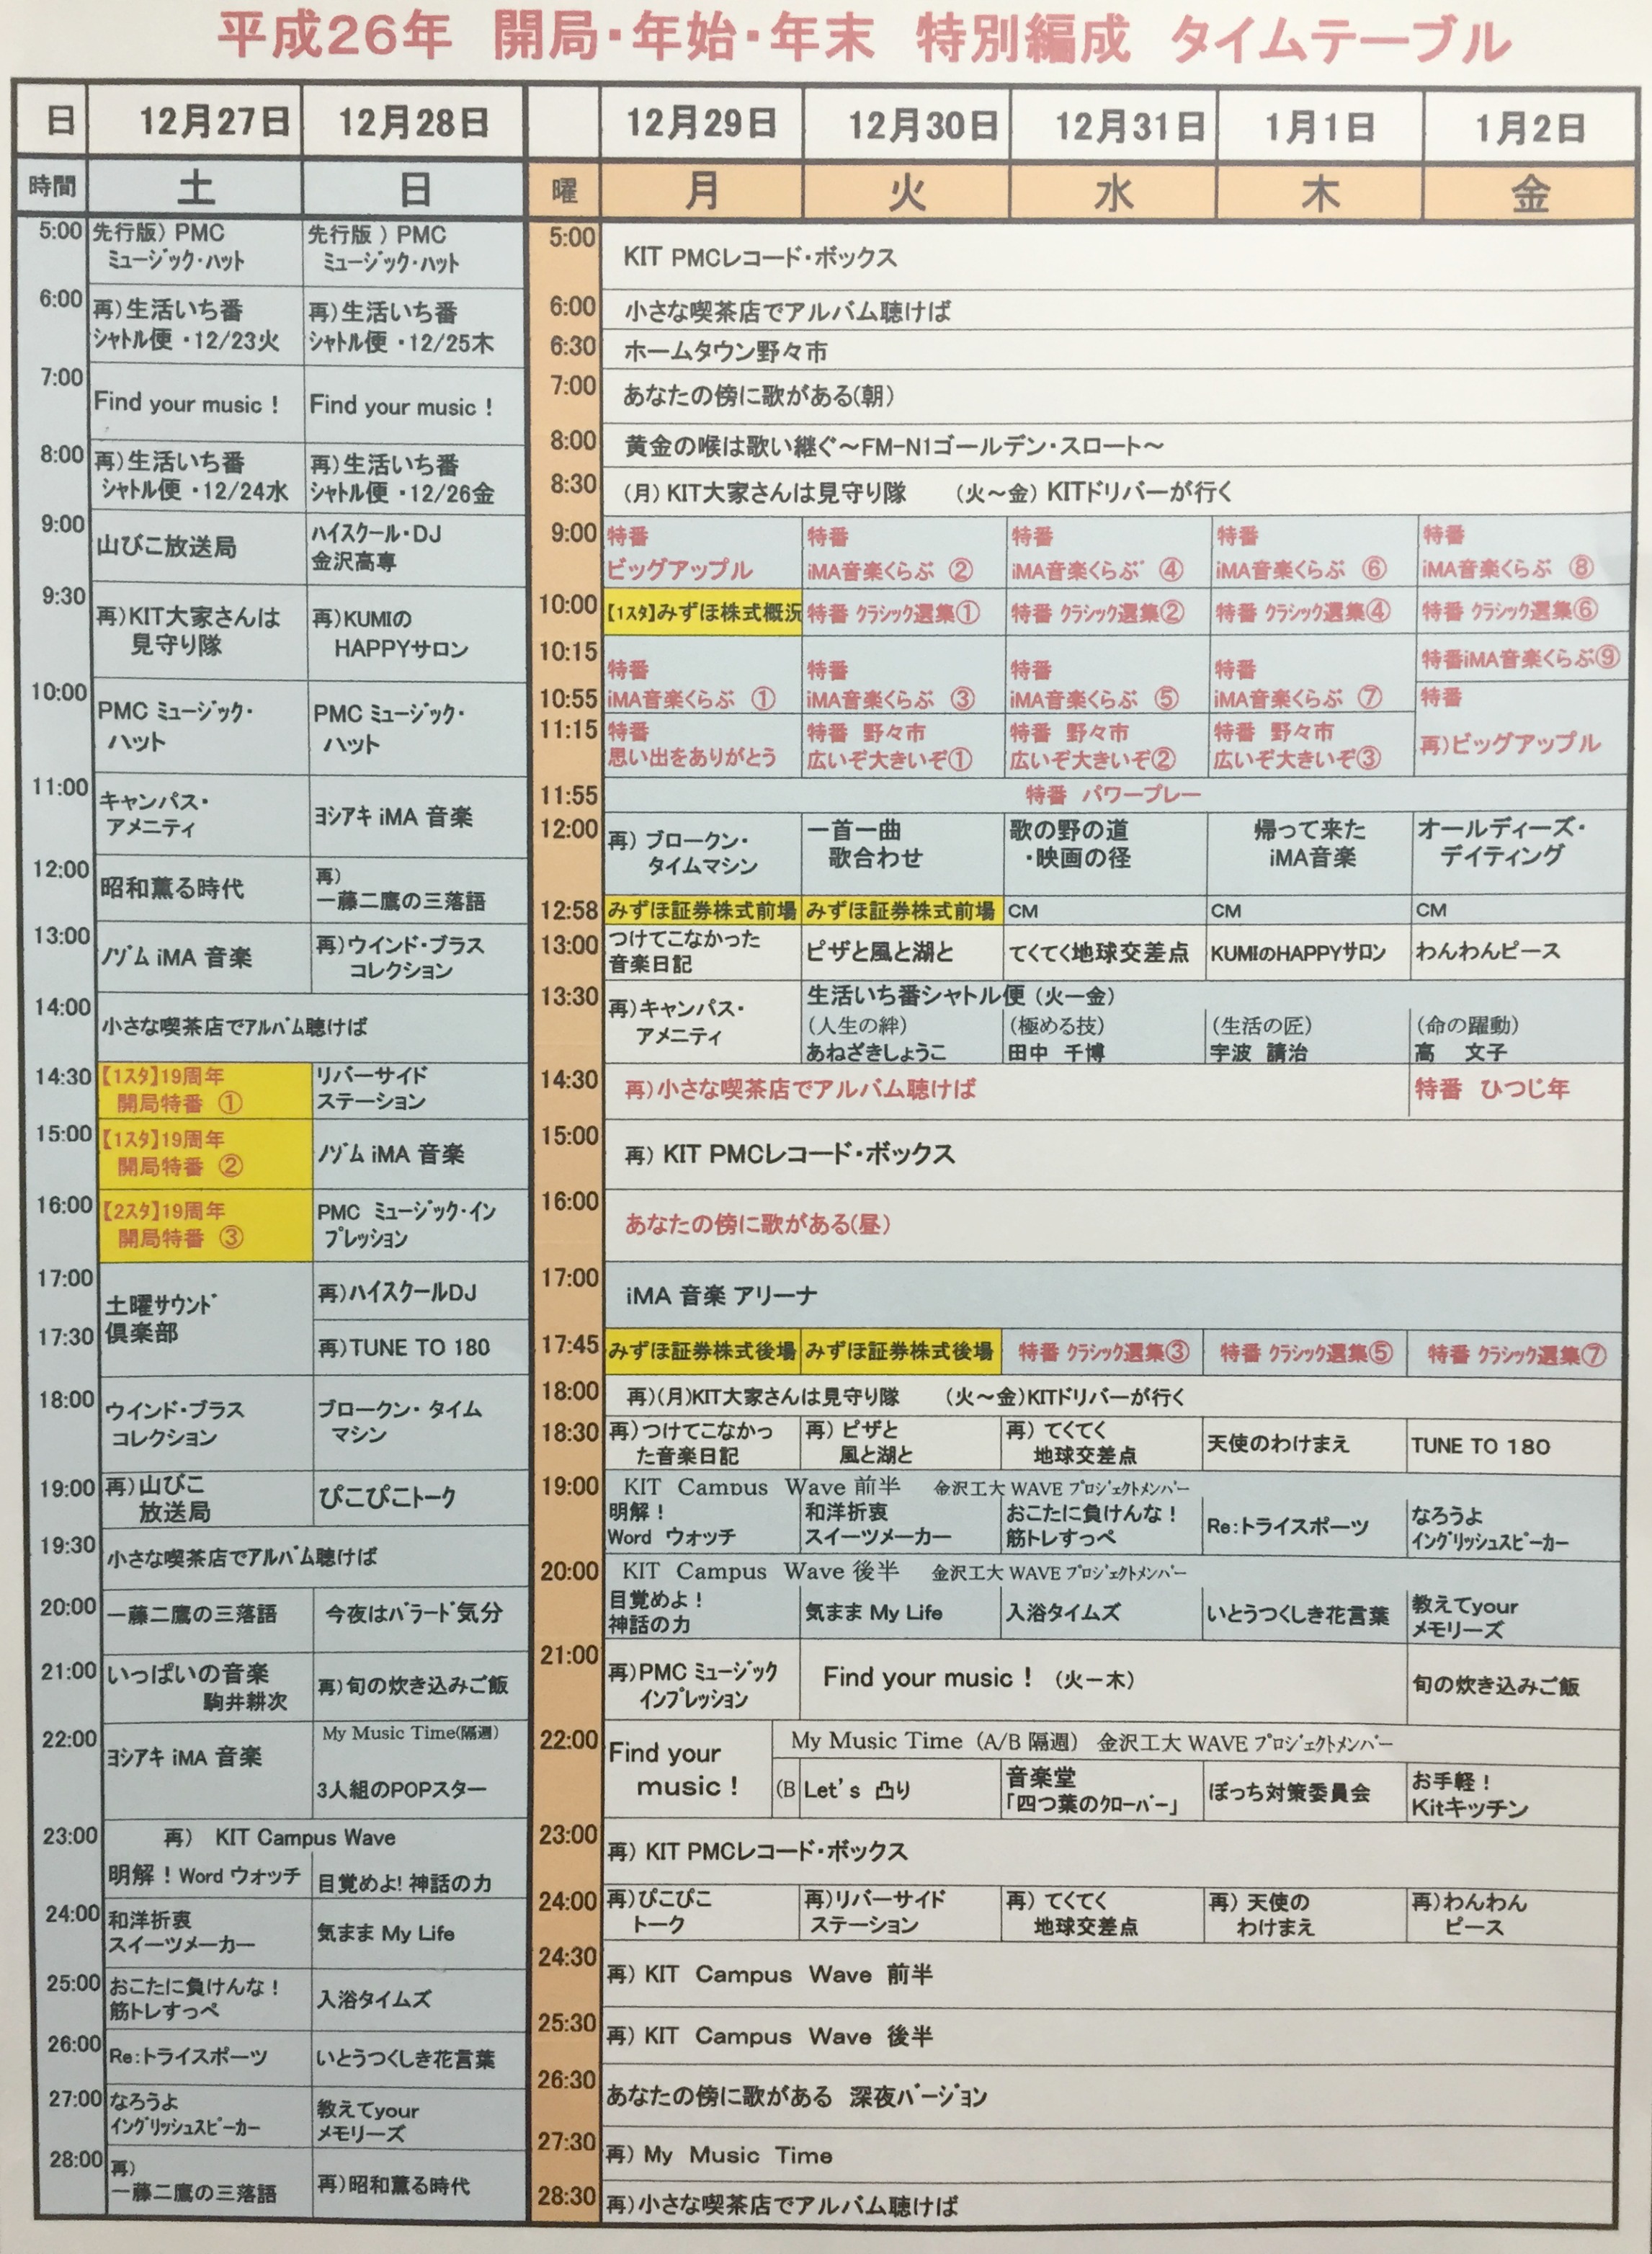 平成26年 開局・年始・年末 特別編成 タイムテーブル
日 12月27日 12月28日 12月29日 12月30日 12月31日 1月1日 1月2日
時間 土 日 曜 月 火 水 木 金
5:00 先行版）PMC
ミュージック・ハット
先行版 ）PMC
ミュージック・ハット
6:00 再）生活いち番
シャトル便 ・12/23火
再）生活いち番
シャトル便 ・12/25木
7:00 Find your music！ Find your music！
8:00 再）生活いち番
シャトル便 ・12/24水
再）生活いち番
シャトル便 ・12/26金
9:00 山びこ放送局
ハイスクール・DJ
金沢高専
9:30 再）KIT大家さんは
見守り隊
再）KUMIの
HAPPYサロン
10:00 PMC ミュージック・
ハット
PMC ミュージック・
ハット
11:00 キャンパス・
アメニティ
ヨシアキ iMA 音楽
12:00 昭和薫る時代
再）
一藤二鷹の三落語
13:00 ノゾム iMA 音楽
再）ウインド・ブラス
コレクション
14:00 小さな喫茶店でアルバム聴けば
14:30 【1スタ】19周年
開局特番 ①
リバーサイド
ステーション
15:00 【1スタ】19周年
開局特番 ②
ノゾム iMA 音楽
16:00 【2スタ】19周年
開局特番 ③
PMC ミュージック・イン
プレッション
17:00 土曜サウンド
倶楽部
再）ハイスクールDJ
17:30 再）TUNE TO 180
18:00 ウインド・ブラス
コレクション
ブロークン・タイム
マシン
19:00 再）山びこ
放送局
ぴこぴこトーク
19:30 小さな喫茶店でアルバム聴けば
20:00 一藤二鷹の三落語 今夜はバラード気分
21:00 いっぱいの音楽
駒井耕次
再）旬の炊き込みご飯
22:00 ヨシアキ iMA 音楽
My Music Time(隔週)
3人組のPOPスター
23:00 再） KIT Campus Wave
明解！Word ウォッチ 目覚めよ! 神話の力
24:00 和洋折衷
スイーツメーカー
気まま My Life
25:00 おこたに負けんな！
筋トレすっぺ
入浴タイムズ
26:00 Re:トライスポーツ いとうつくしき花言葉
27:00 なろうよ
イングリッシュスピーカー
教えてyour
メモリーズ
28:00 再）
一藤二鷹の三落語
再）昭和薫る時代
5:00 KIT PMCレコード・ボックス
6:00 小さな喫茶店でアルバム聴けば
6:30 ホームタウン野々市
7:00 あなたの傍に歌がある(朝)
8:00 黄金の喉は歌い継ぐ～FM-N1ゴールデン・スロート～
8:30 （月）KIT大家さんは見守り隊 （火～金）KITドリバーが行く
9:00 特番 特番 特番 特番 特番
ビッグアップル iMA音楽くらぶ ② iMA音楽くらぶ ④ iMA音楽くらぶ ⑥ iMA音楽くらぶ ⑧
10:00 【1スタ】みずほ株式概況 特番 クラシック選集① 特番 クラシック選集② 特番 クラシック選集④ 特番 クラシック選集⑥
10:15 特番 特番 特番 特番 特番iMA音楽くらぶ⑨
10:55 iMA音楽くらぶ ① iMA音楽くらぶ ③ iMA音楽くらぶ ⑤ iMA音楽くらぶ ⑦ 特番
11:15 特番 特番 野々市 特番 野々市 特番 野々市 再）ビッグアップル
思い出をありがとう 広いぞ大きいぞ① 広いぞ大きいぞ② 広いぞ大きいぞ③
11:55 特番 パワープレー
12:00 再）ブロークン・
タイムマシン
一首一曲
歌合わせ
歌の野の道
・映画の径
帰って来た
iMA音楽
オールディーズ・
デイティング
12:58 みずほ証券株式前場 みずほ証券株式前場 CM CM CM
13:00 つけてこなかった
音楽日記
ピザと風と湖と てくてく地球交差点 KUMIのHAPPYサロン わんわんピース
13:30 再）キャンパス・
アメニティ
生活いち番シャトル便（火ー金）
（人生の絆） （極める技） （生活の匠） （命の躍動）
あねざきしょうこ 田中 千博 宇波 請治 高 文子
14:30 再）小さな喫茶店でアルバム聴けば 特番 ひつじ年
15:00 再）KIT PMCレコード・ボックス
16:00 あなたの傍に歌がある(昼)
17:00 iMA 音楽 アリーナ
17:45 みずほ証券株式後場 みずほ証券株式後場 特番 クラシック選集③ 特番 クラシック選集⑤ 特番 クラシック選集⑦
18:00 再）(月)KIT大家さんは見守り隊 （火～金)KITドリバーが行く
18:30 再）つけてこなかっ
た音楽日記
再）ピザと
風と湖と
再）てくてく
地球交差点
天使のわけまえ TUNE TO 180
19:00 KIT Campus Wave 前半 金沢工大 WAVE プロジェクトメンバー
明解！
Word ウォッチ
和洋折衷
スイーツメーカー
おこたに負けんな！
筋トレすっぺ
Re:トライスポーツ
なろうよ
イングリッシュスピーカー
20:00 KIT Campus Wave 後半 金沢工大 WAVE プロジェクトメンバー
目覚めよ！
神話の力
気まま My Life 入浴タイムズ いとうつくしき花言葉
教えてyour
メモリーズ
21:00 再）PMC ミュージック
インプレッション
Find your music！（火－木） 旬の炊き込みご飯
22:00 Find your
music！
My Music Time（A/B 隔週） 金沢工大 WAVE プロジェクトメンバー
(B Let's 凸り
音楽堂
「四つ葉のクローバー」
ぼっち対策委員会
お手軽！
Kitキッチン
23:00 再）KIT PMCレコード・ボックス
24:00 再）ぴこぴこ
トーク
再）リバーサイド
ステーション
再）てくてく
地球交差点
再）天使の
わけまえ
再）わんわん
ピース
24:30 再）KIT Campus Wave 前半
25:30 再）KIT Campus Wave 後半
26:30 あなたの傍に歌がある 深夜バージョン
27:30 再）My Music Time
28:30 再）小さな喫茶店でアルバム聴けば